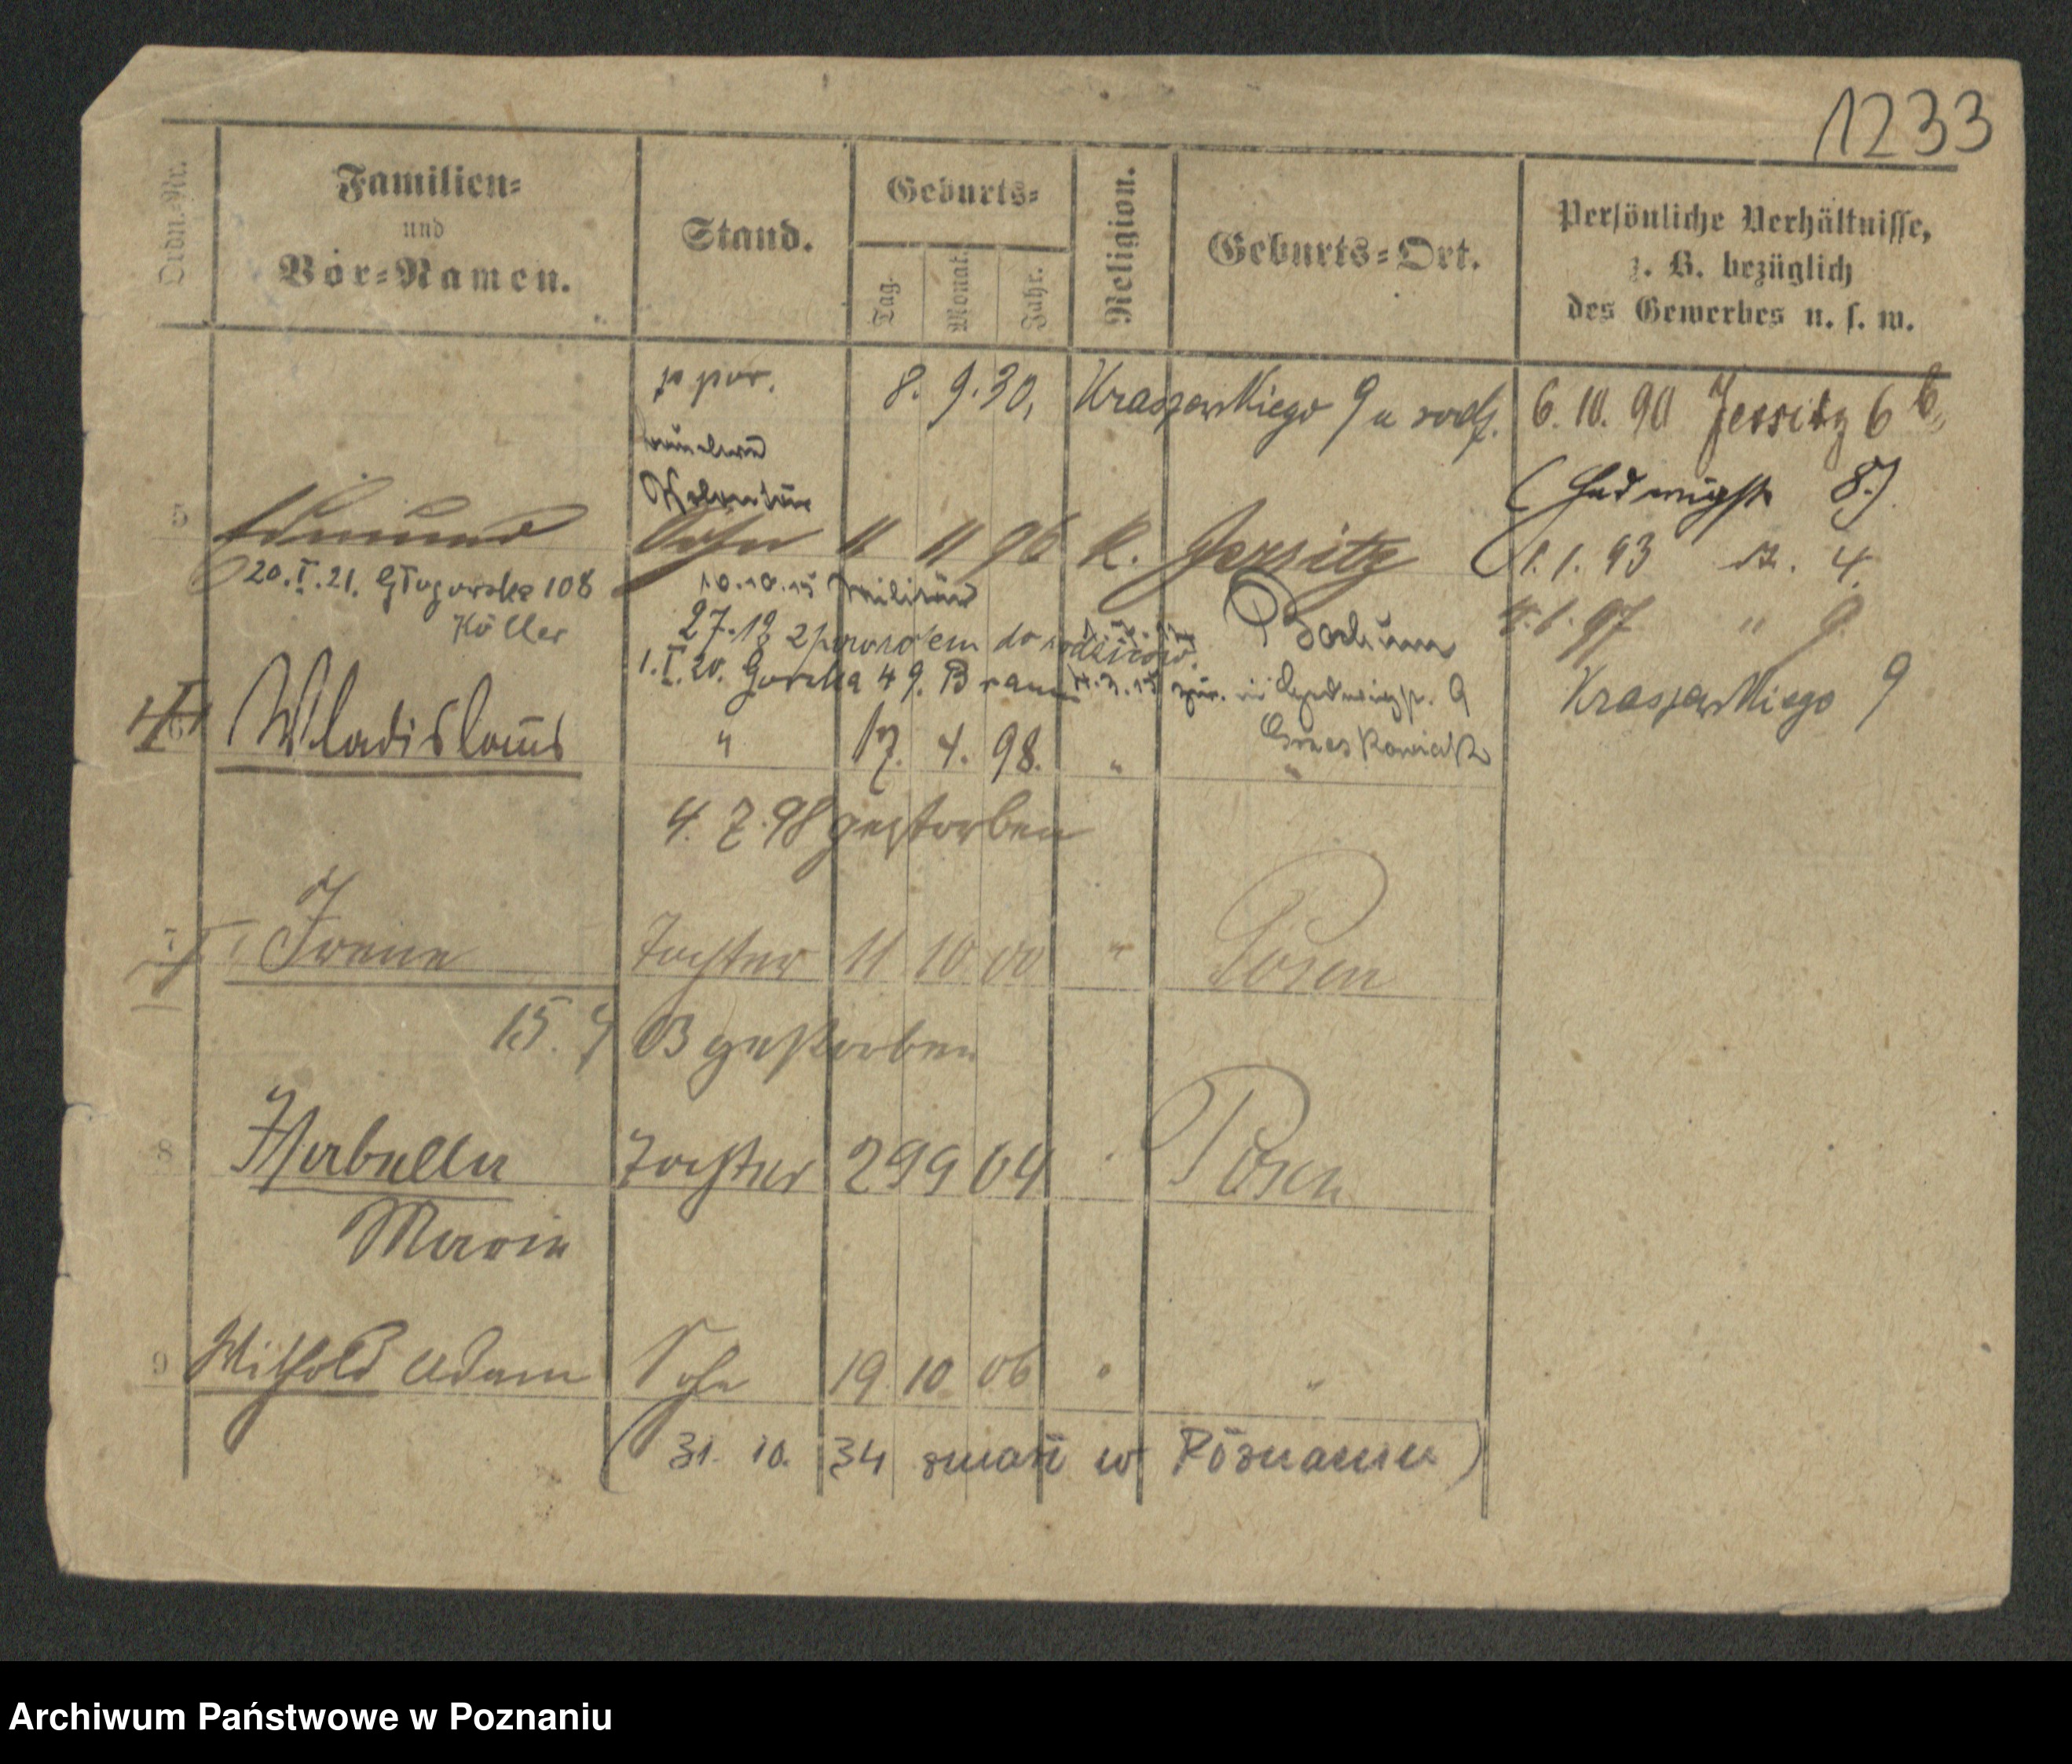 1233
Ordn.-Nr.
Familien-
und
Vor-Namen.
Stand.
Geburts-
Tag.
Monat.
Jahr.
Religion.
Geburts-Ort.
Persönliche Verhältnisse,
z. B. bezüglich
des Gewerbes u. s. w.
p por. 8. 9. 30, Kraszewskiego 9 u rodz.
6. 10. 90 Jersitz 6 b
(Hedwigstr 8.)
1. 1. 93 4.
1. 97 " 9
Kraszewskiego 9
Volontär
5 Edmund Sohn 11 11 96 K. Jersitz
20.I.21. Głogowska 108
Köller
10.10.15 Militär
27.19 z powrotem do rodziców.
Bochum
1.I.20. Gorcka 49. 4.3.15 zur. in Hedwigstr. 9
6 Wladislaus " 17. 4. 98. " "
4. 7. 98 gestorben
7 Irene Tochter 11 10 00 " Posen
15. 9 03 gestorben
8 Isabella Tochter 29 9 04 Posen
Maria
9 Withold Adam Sohn 19 10 06 " "
(31. 10. 34 zmarł w Poznaniu)
Archiwum Państwowe w Poznaniu